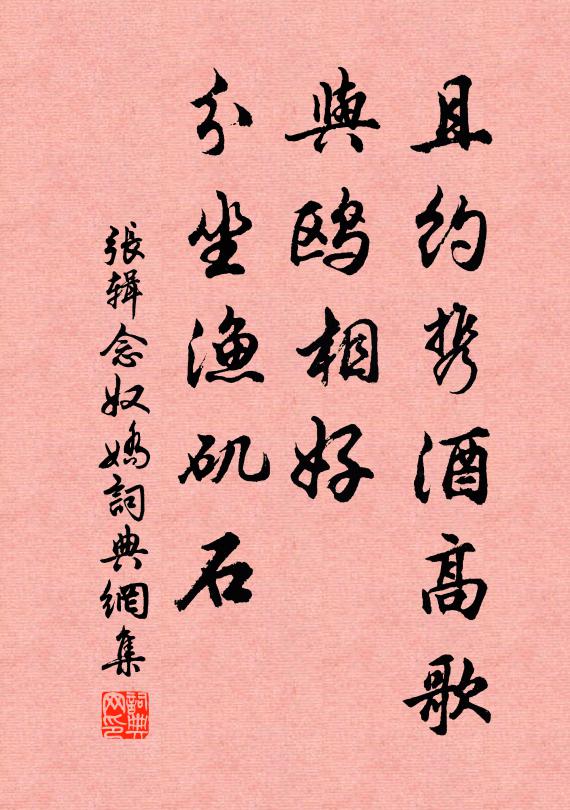 且约携酒高歌
與鸥相好
分坐渔矶石
張辑念奴嬌詞典網集
詞典网印